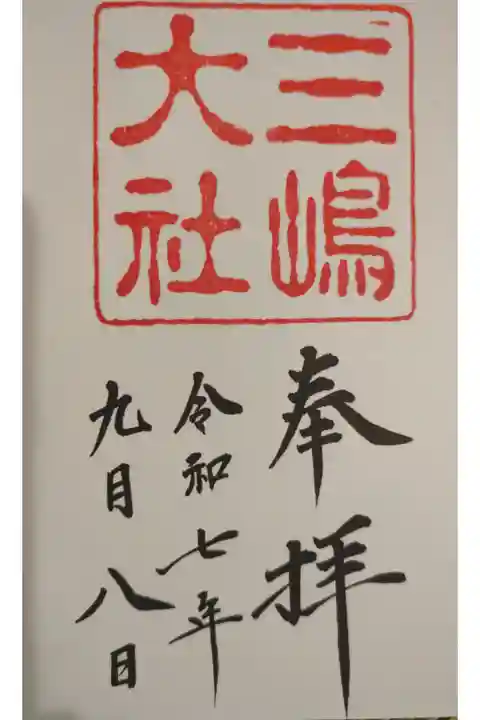 三嶋
大社
奉拝
令和七年
九月八日